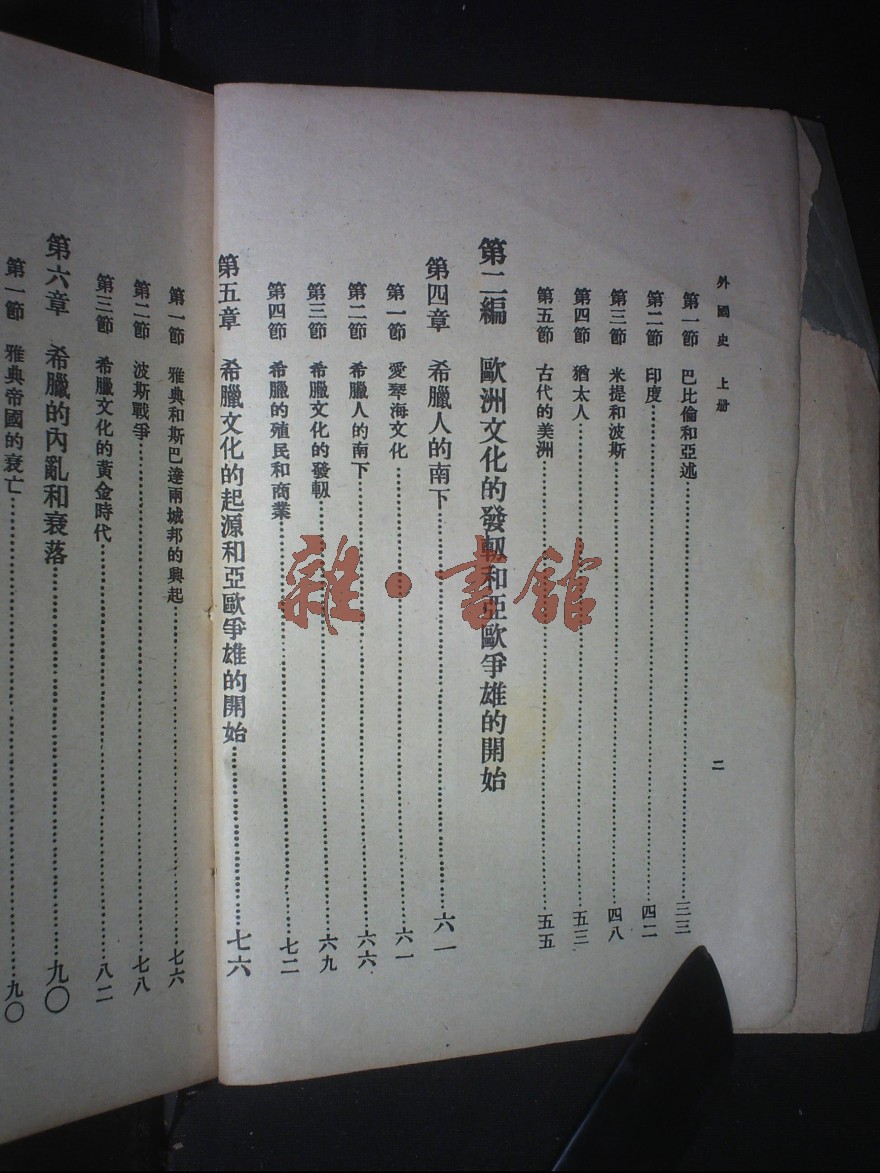 外國史 上册
二
第一節 巴比倫和亞述……三三
第二節 印度……四二
第三節 米提和波斯……四八
第四節 猶太人……五三
第五節 古代的美洲……五五
第二編 歐洲文化的發軔和亞歐爭雄的開始
第四章 希臘人的南下……六一
第一節 愛琴海文化……六一
第二節 希臘人的南下……六六
第三節 希臘文化的發軔……六九
第四節 希臘的殖民和商業……七二
第五章 希臘文化的起源和亞歐爭雄的開始……七六
第一節 雅典和斯巴達兩城邦的興起……七六
第二節 波斯戰爭……七八
第三節 希臘文化的黃金時代……八二
第六章 希臘的內亂和衰落……九〇
第一節 雅典帝國的衰亡……九〇
雜·書館